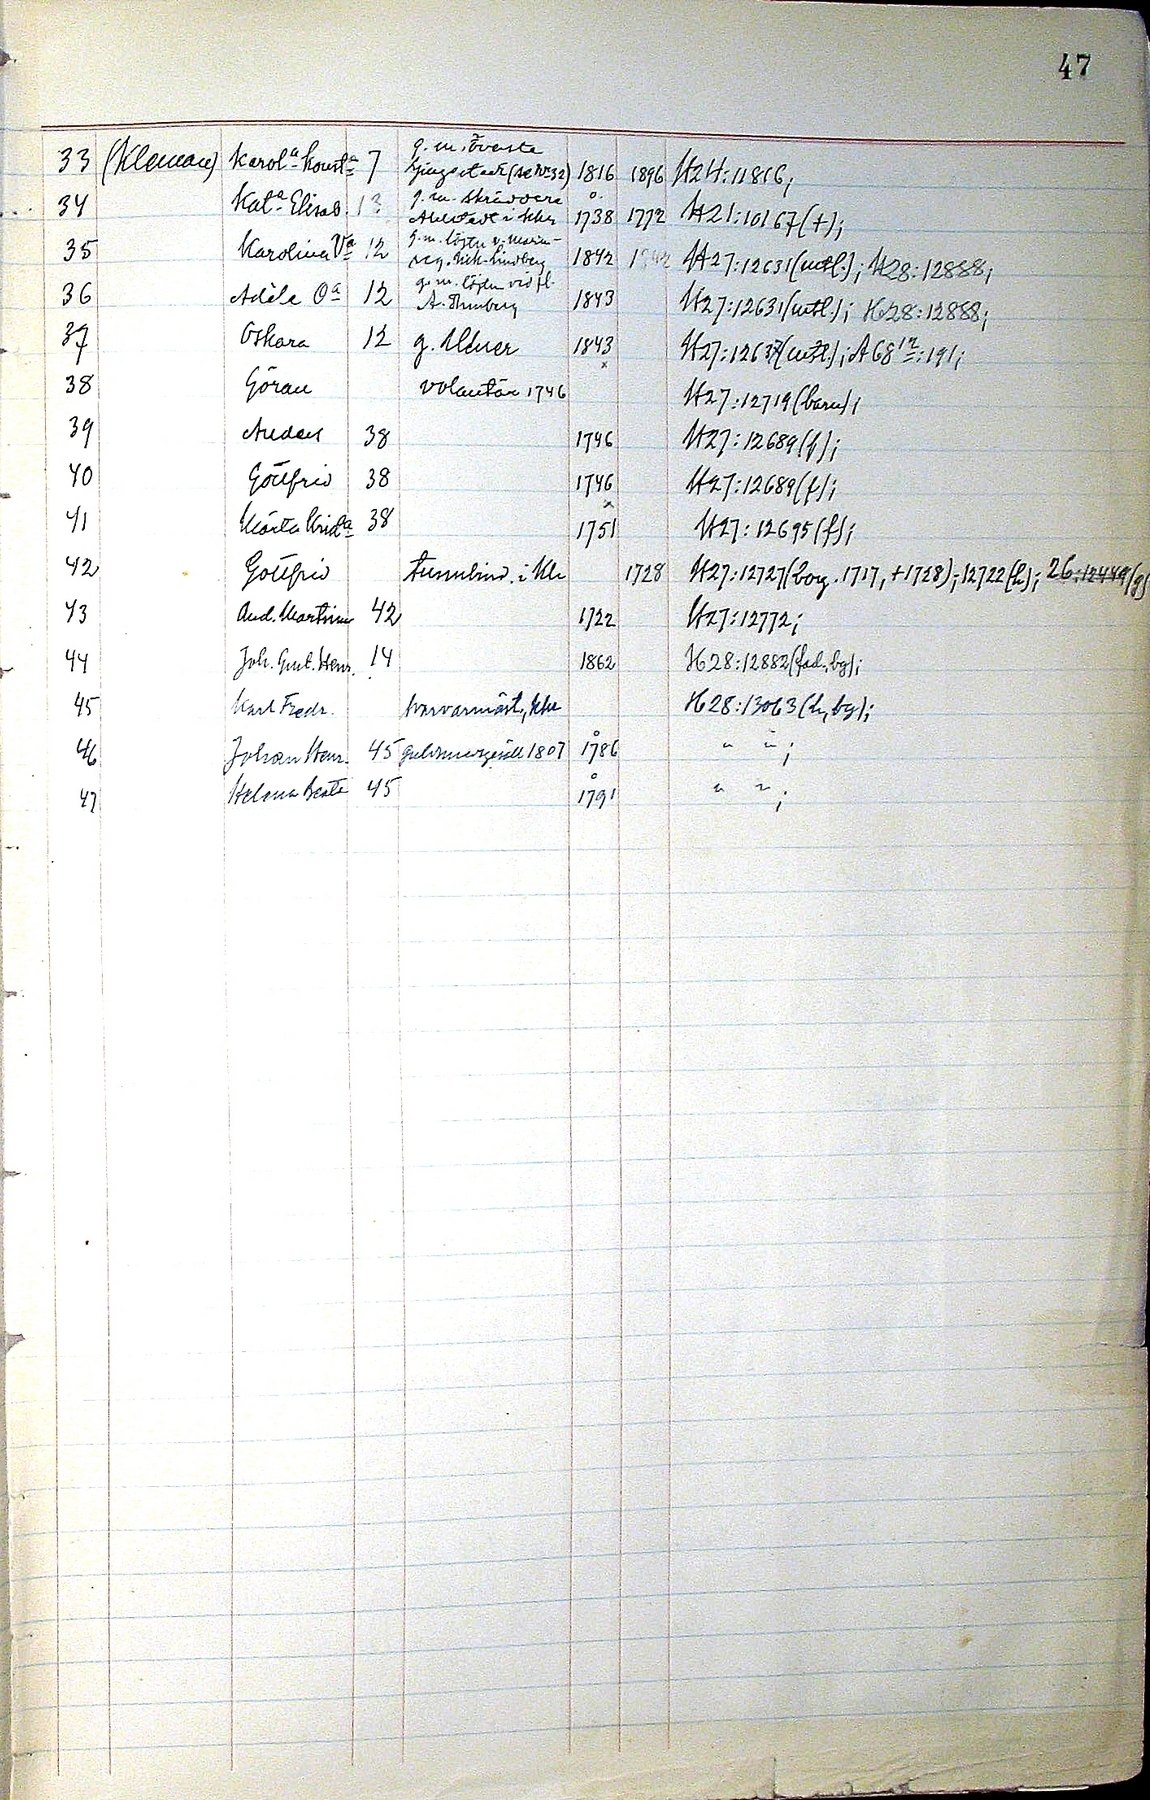 47
33 (Kleman) Karolª Konstª 7 g. m. överste Ljungstedt (se № 32) 1816 1896 H24:11816;
34 Katª Elisab. 1? g. m. skräddare i Kkr 1738 1772 H21:10167(+);
35 Karolina Vª 12 g. m. löjtn v. marin- Lindberg 1842 H27:12631(mtl.); H28:12888;
36 Adèle Oª 12 g. m. löjtn vid fl. A. Thunberg 1843 H27:12631(mtl.); H28:12888;
37 Oskara 12 g. Elmer 1843 H27:12637(mtl.); A68¹²:191;
38 Göran volontär 1746 H27:12719(barn);
39 Anders 38 1746 H27:12689(f);
40 Gottfrid 38 1746 H27:12689(f);
41 Märta Kristª 38 1751 H27:12695(f);
42 Gottfrid tunnbind. i Kkr 1728 H27:12727(borg. 1717, +1728); 12722(h); 26:12449(g)
43 And. Martinus 42 1722 H27:12772;
44 Joh. Gust. Henr. 14 1862 H28:12882(fad., bg);
45 Karl Fredr. svarvarmäst., Kkr H28:13063(h, bg);
46 Johan Henr. 45 guldsmedsgesäll 1807 1786 " ";
47 Helena Beata 45 1791 " ";